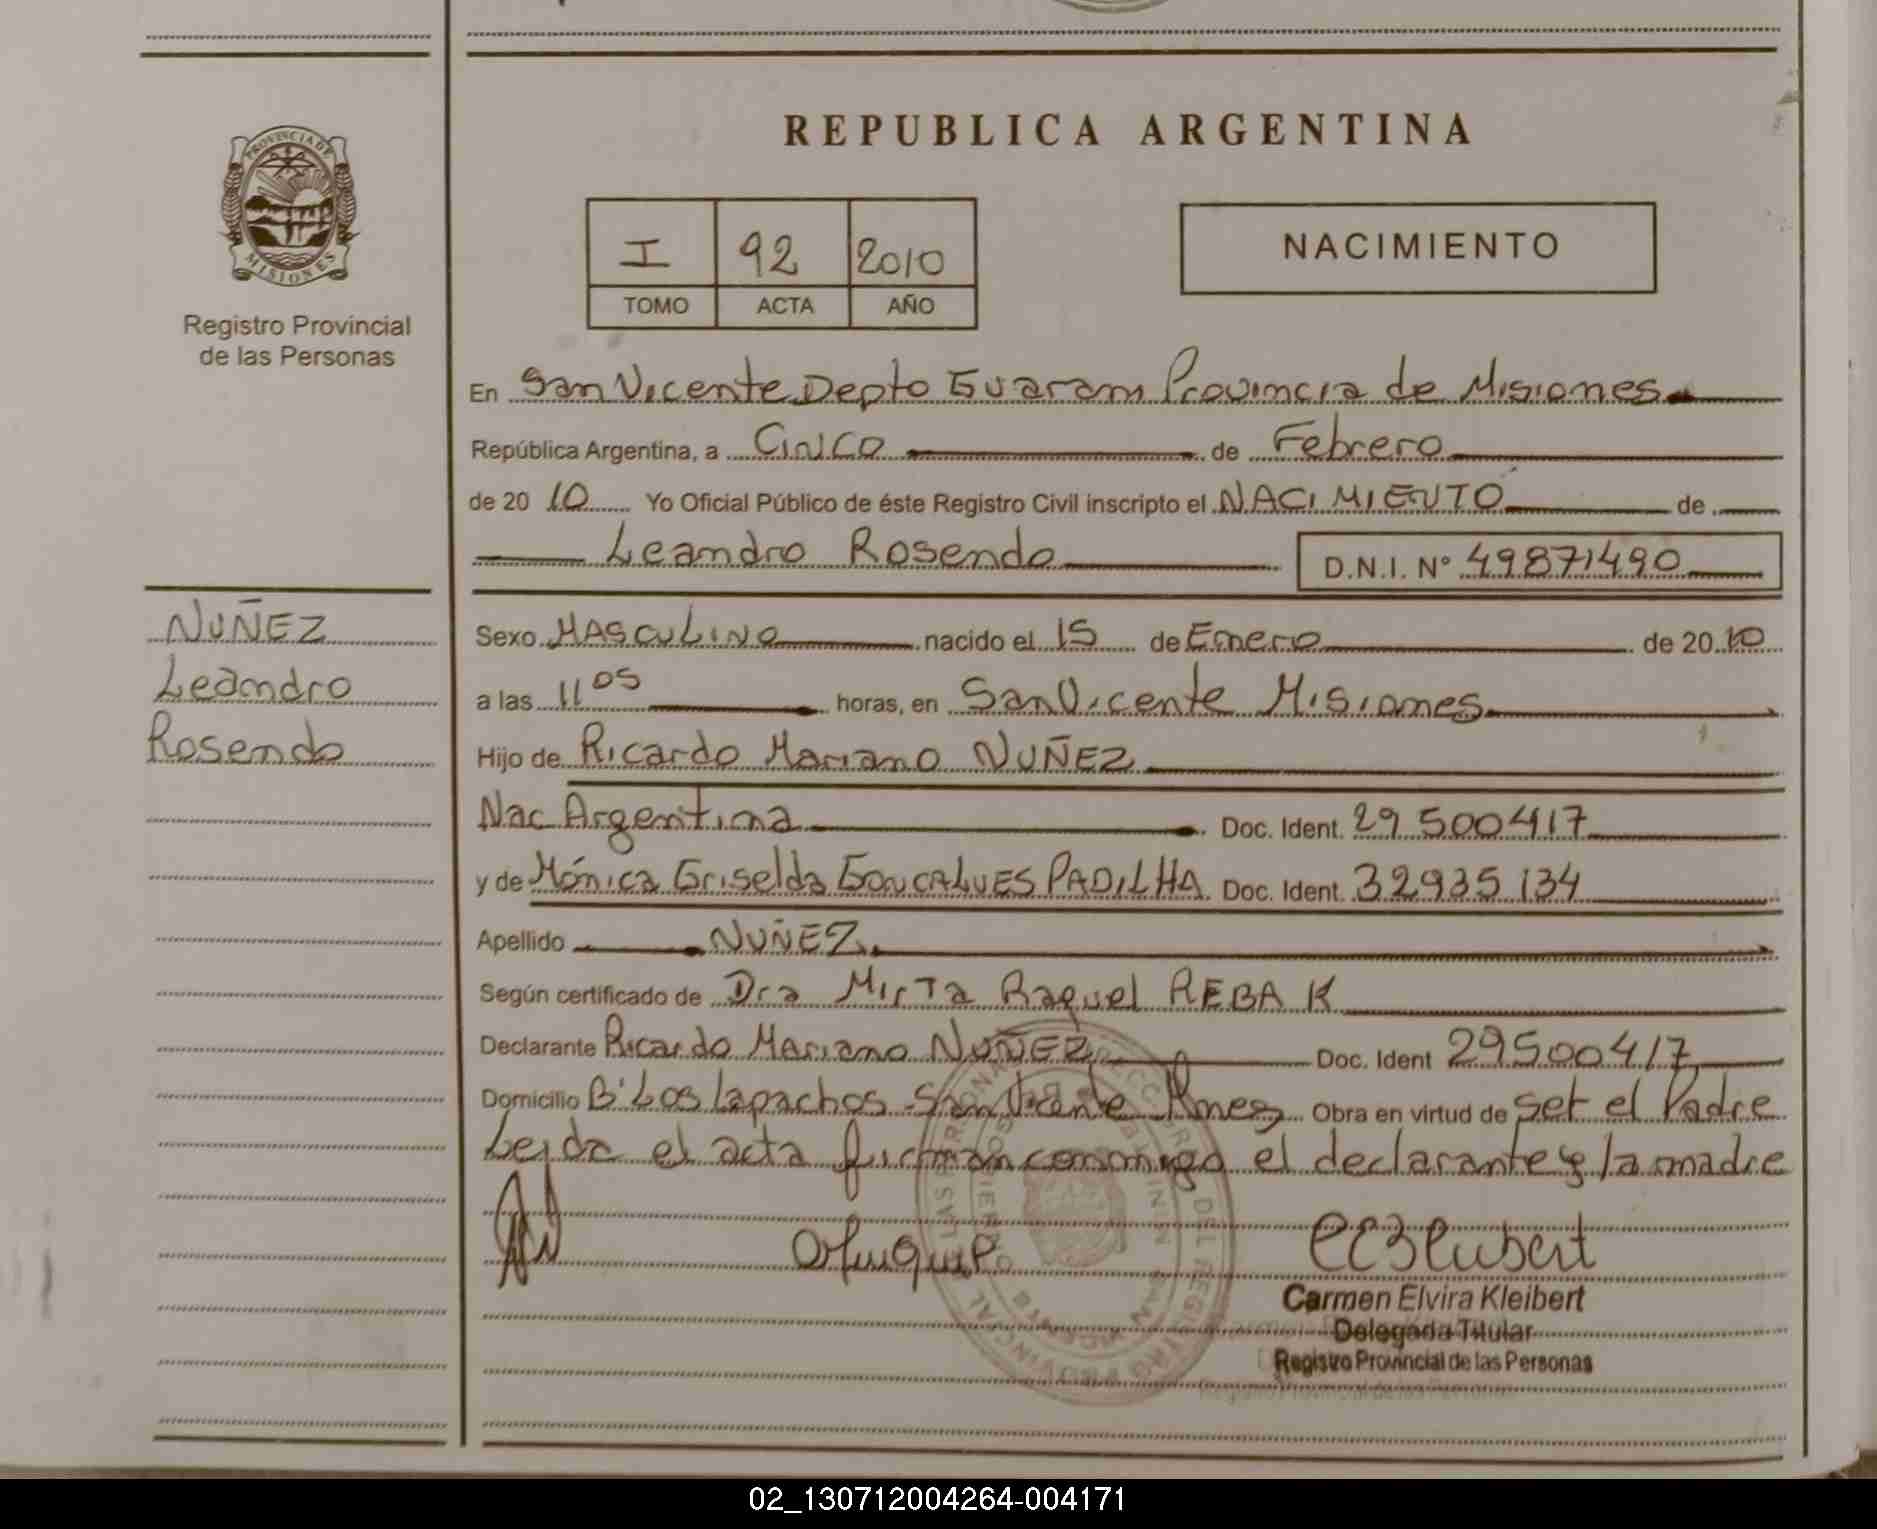 REPUBLICA ARGENTINA
PROVINCIA DE
MISIONES
Registro Provincial
de las Personas
I 92 2010
TOMO ACTA AÑO
NACIMIENTO
En San Vicente Depto Guaram Provincia de Misiones
República Argentina, a Cinco de Febrero
de 20 10 Yo Oficial Público de éste Registro Civil inscripto el NACIMIENTO de
Leandro Rosendo D.N.I. Nº 49871490
NUÑEZ
Leandro
Rosendo
Sexo MASCULINO nacido el 15 de Enero de 20 10
a las 11 05 horas, en San Vicente Misiones
Hijo de Ricardo Mariano NUÑEZ
Nac Argentina Doc. Ident. 29 500417
y de Mónica Griselda GONCALVES PADILHA Doc. Ident. 32935134
Apellido NUÑEZ
Según certificado de Dra Mirta Raquel REBAK
Declarante Ricardo Mariano NUÑEZ Doc. Ident 29500417
Domicilio B' Los lapachos San Vicente Mnes Obra en virtud de ser el Padre
Leida el acta firman conmigo el declarante y la madre
Carmen Elvira Kleibert
Delegada Titular
Registro Provincial de las Personas
02_130712004264-004171